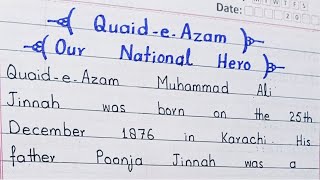 Date:
20
Quaid-e-Azam
Our National Hero
Quaid-e-Azam Muhammad Ali
Jinnah was born on the 25th
December 1876 in Karachi. His
father Poonja Jinnah was a